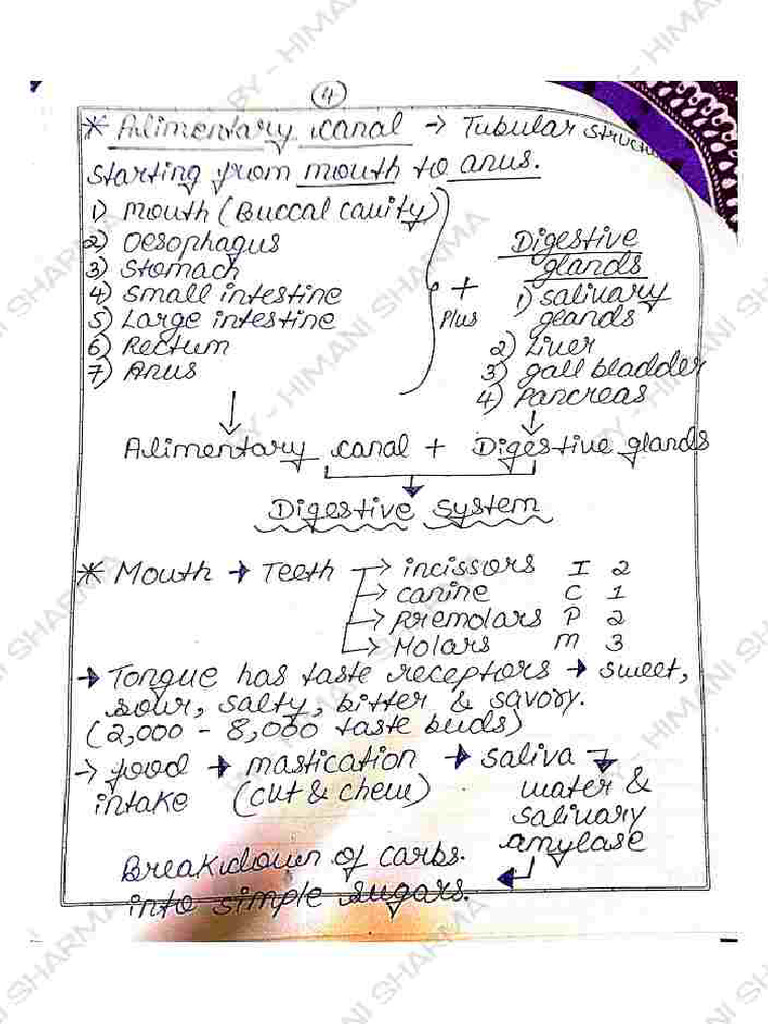 4
* Alimentary canal → Tubular structure
starting from mouth to anus.
1) Mouth (Buccal cavity)
2) Oesophagus
3) Stomach
4) Small intestine
5) Large intestine
6) Rectum
7) Anus
+
Plus
Digestive
glands
1) Salivary
glands
2) Liver
3) gall bladder
4) Pancreas
Alimentary canal + Digestive glands
Digestive System
* Mouth → Teeth → incissors I 2
→ canine C 1
→ Premolars P 2
→ Molars M 3
→ Tongue has taste receptors → sweet,
sour, salty, bitter & savory.
(2,000 - 8,000 taste buds)
→ food → mastication → saliva →
intake (cut & chew) water &
salivary
amylase
Breakdown of carbs.
into simple sugars.
BY - HIMANI SHARMA